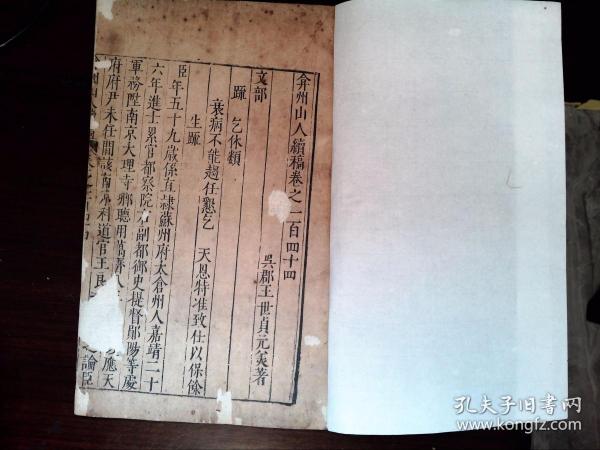 弇州山人續稿卷之一百四十四
吳郡王世貞元美著
文部
䟽 乞休類
衰病不能趨任懇乞 天恩特准致仕以保餘
生䟽
臣年五十九歲係直隸蘇州府太倉州人嘉靖二十
六年進士累官都察院右副都御史提督鄖陽等處
軍務陞南京大理寺卿聽用
應天
府府尹未任間該南京科道官王
論臣
孔夫子旧书网
www.kongfz.com